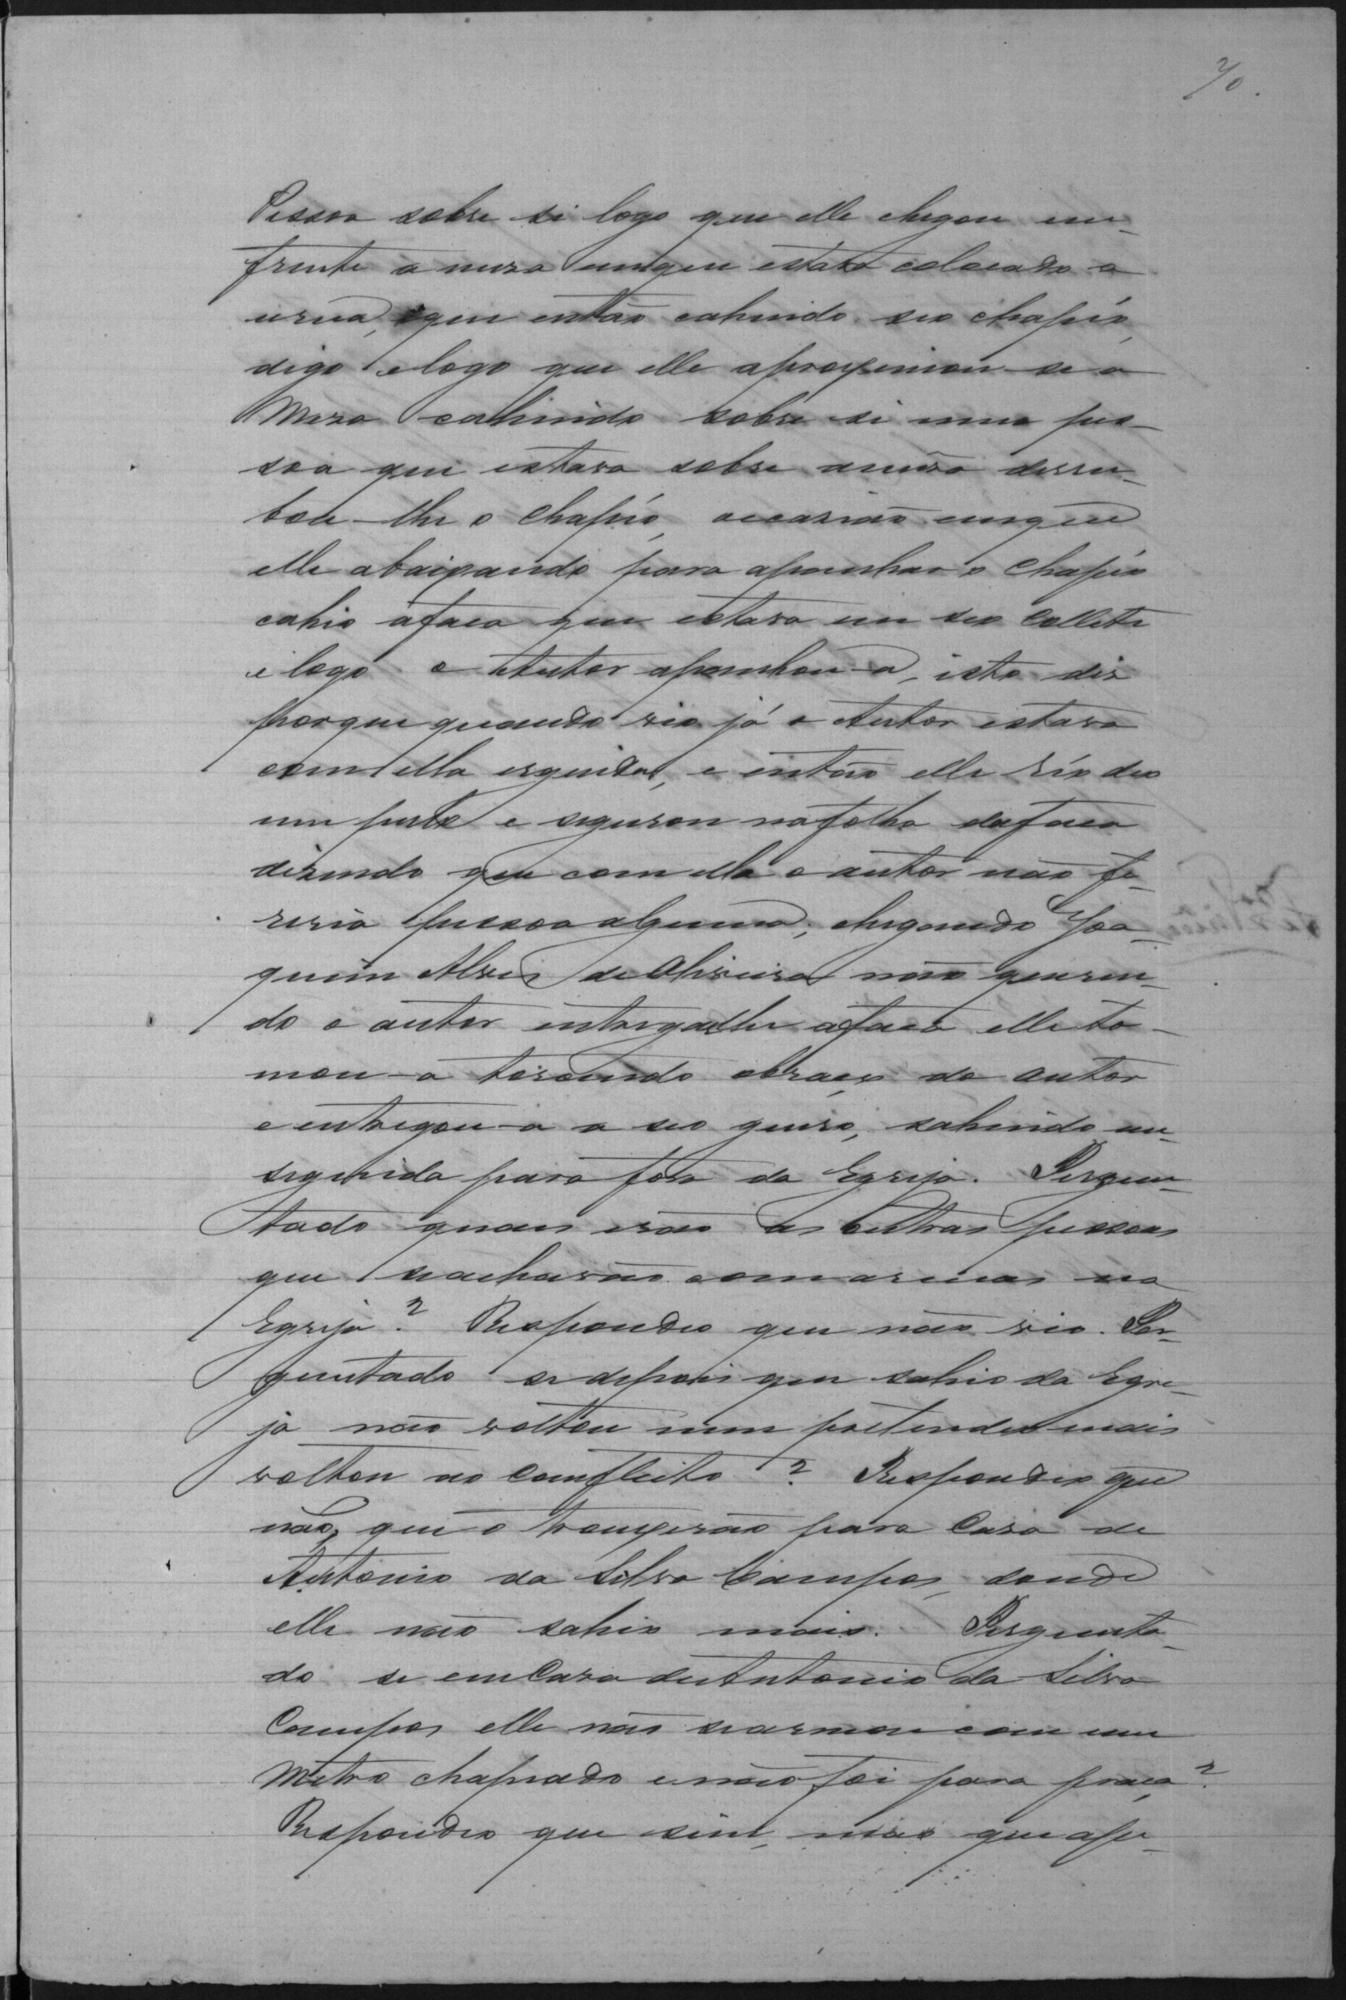 70.
Pessoa sobre si logo que elle chegou em-
frente a meza emque estava colocado a
urna, e que então cahindo seo chapéo,
digo e logo que elle aproxemiou-se a
Meza cahindo sobre si uma pes-
soa que estava sobre ameza derru-
bou-lhe o chapéo, occasião emque
elle abaixando para apanhar o Chapéo
cahio afaca que estava em seo Collete
e logo o Autor apanhou-a, isto diz
porque quando vio já o Autor estava
com ella erguida, e então elle Réo deo
um pulo e segurou nafolha dafaca
dizendo que com ella o autor não fe-
reria pessoa alguma; chegando Joa-
quim Alves de Oliveira não queren-
do o autor entregarlhe afaca elle to-
mou-a torcendo obraço do autor
e entregou-a a seo genro, sahindo em-
seguida para fora da Egreja. Pergun-
tado quaes erão as outras pessoas
que seachavão com armas na
Egreja? Respondeo que não vio. Per-
guntado se depois que sahio da Egre-
ja não voltou nem pretendeo mais
voltou ao Comfleito? Respondeo que
não, que o trouxerão para Caza de
Antonio da Silva Campos, donde
elle não sahio mais. Pergunta-
do se emCaza deAntonio da Silva
Campos elle não searmou com um
Metro chapeado e não foi para praça?
Respondeo que sim, mas que ape-